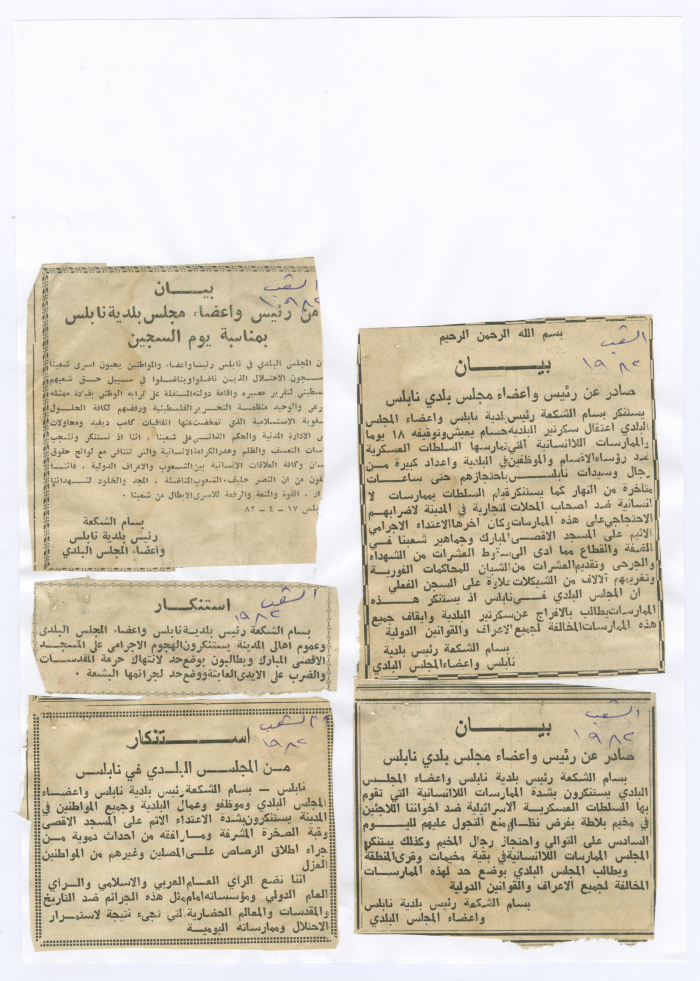 الشعب
١٩٨٢
بيـــان
من رئيس واعضاء مجلس بلدية نابلس
بمناسبة يوم السجين
ان المجلس البلدي في نابلس رئيسا واعضاء والمواطنين يحيون اسرى شعبنا
سجون الاحتلال الذين ناضلوا ويناضلوا في سبيل حق شعبهم
تقرير مصيره واقامة دولته المستقلة على ترابه الوطني بقيادة ممثله
والوحيد منظمة التحرير الفلسطينية ورفضهم لكافة الحلول
الاستسلامية الذي تمخضت عنها اتفاقيات كامب ديفيد ومحاولات
الادارة المدنية والحكم الذاتي على شعبنا . اننا اذ نستنكر ونشجب
التعسف والظلم وهدر الكرامة الانسانية والتي تتنافى مع لوائح حقوق
وكافة العلاقات الانسانية بين الشعوب والاعراف الدولية ، فاننا
من ان النصر حليف الشعوب المناضلة ، المجد والخلود لشهدائنا
، القوة والمنعة والرفعة للاسرى الابطال من شعبنا .
١٧ - ٤ - ٨٢
بسام الشكعة
رئيس بلدية نابلس
واعضاء المجلس البلدي
الشعب
١٩٨٢
استنكـار
بسام الشكعة رئيس بلدية نابلس واعضاء المجلس البلدى
وعموم اهالى المدينة يستنكرون الهجوم الاجرامى على المسجد
الاقصى المبارك ويطالبون بوضع حد لانتهاك حرمة المقدسات
والضرب على الايدى العابثة ووضع حد لجرائمها البشعة .
الشعب
١٩٨٢
استنكار
من المجلس البلدي في نابلس
نابلس — بسام الشكعة رئيس بلدية نابلس واعضاء
المجلس البلدي وموظفو وعمال البلدية وجميع المواطنين في
المدينة يستنكرون بشدة الاعتداء الاثم على المسجد الاقصى
وقبة الصخرة المشرفة ومارافقه من احداث دموية من
جراء اطلاق الرصاص على المصلين وغيرهم من المواطنين
العزل
اننا نضع الرأي العام العربي والاسلامي والرأي
العام الدولي ومؤسساته امام مثل هذه الجرائم ضد التاريخ
والمقدسات والمعالم الحضارية التي تجيء نتيجة لاستمرار
الاحتلال وممارساته اليومية
الشعب
١٩٨٢
بسم الله الرحمن الرحيم
بيـــان
صادر عن رئيس واعضاء مجلس بلدي نابلس
يستنكر بسام الشكعة رئيس بلدية نابلس واعضاء المجلس
البلدي اعتقال سكرتير البلدية حسام يعيش وتوقيفه ١٨ يوما
والممارسات اللاانسانية التي تمارسها السلطات العسكرية
ضد رؤساء الاقسام والموظفين في البلدية واعداد كبيرة من
رجال وسيدات نابلس باحتجازهم حتى ساعات
متأخرة من النهار كما يستنكر قيام السلطات بممارسات لا
انسانية ضد اصحاب المحلات التجارية في المدينة لاضرابهم
الاحتجاجي على هذه الممارسات وكان اخرها الاعتداء الاجرامي
الاثيم على المسجد الاقصى المبارك وجماهير شعبنا في
الضفة والقطاع مما أدى الى سقوط العشرات من الشهداء
والجرحى وتقديم العشرات من الشبان للمحاكمات الفورية
وتغريمهم آلاف من الشيكلات علاوة على السجن الفعلي
ان المجلس البلدي في نابلس اذ يستنكر هذه
الممارسات يطالب بالافراج عن سكرتير البلدية وايقاف جميع
هذه الممارسات المخالفة لجميع الاعراف والقوانين الدولية
بسام الشكعة رئيس بلدية
نابلس واعضاء المجلس البلدي
الشعب
١٩٨٢
بيـــان
صادر عن رئيس واعضاء مجلس بلدي نابلس
بسام الشكعة رئيس بلدية نابلس واعضاء المجلس
البلدي يستنكرون بشدة الممارسات اللاانسانية التي تقوم
بها السلطات العسكرية الاسرائيلية ضد اخواننا اللاجئين
في مخيم بلاطة بفرض نظام منع التجول عليهم لليوم
السادس على التوالي واحتجاز رجال المخيم وكذلك يستنكر
المجلس الممارسات اللاانسانية في بقية مخيمات وقرى المنطقة
ويطالب المجلس البلدي بوضع حد لهذه الممارسات
المخالفة لجميع الاعراف والقوانين الدولية
بسام الشكعة رئيس بلدية نابلس
واعضاء المجلس البلدي